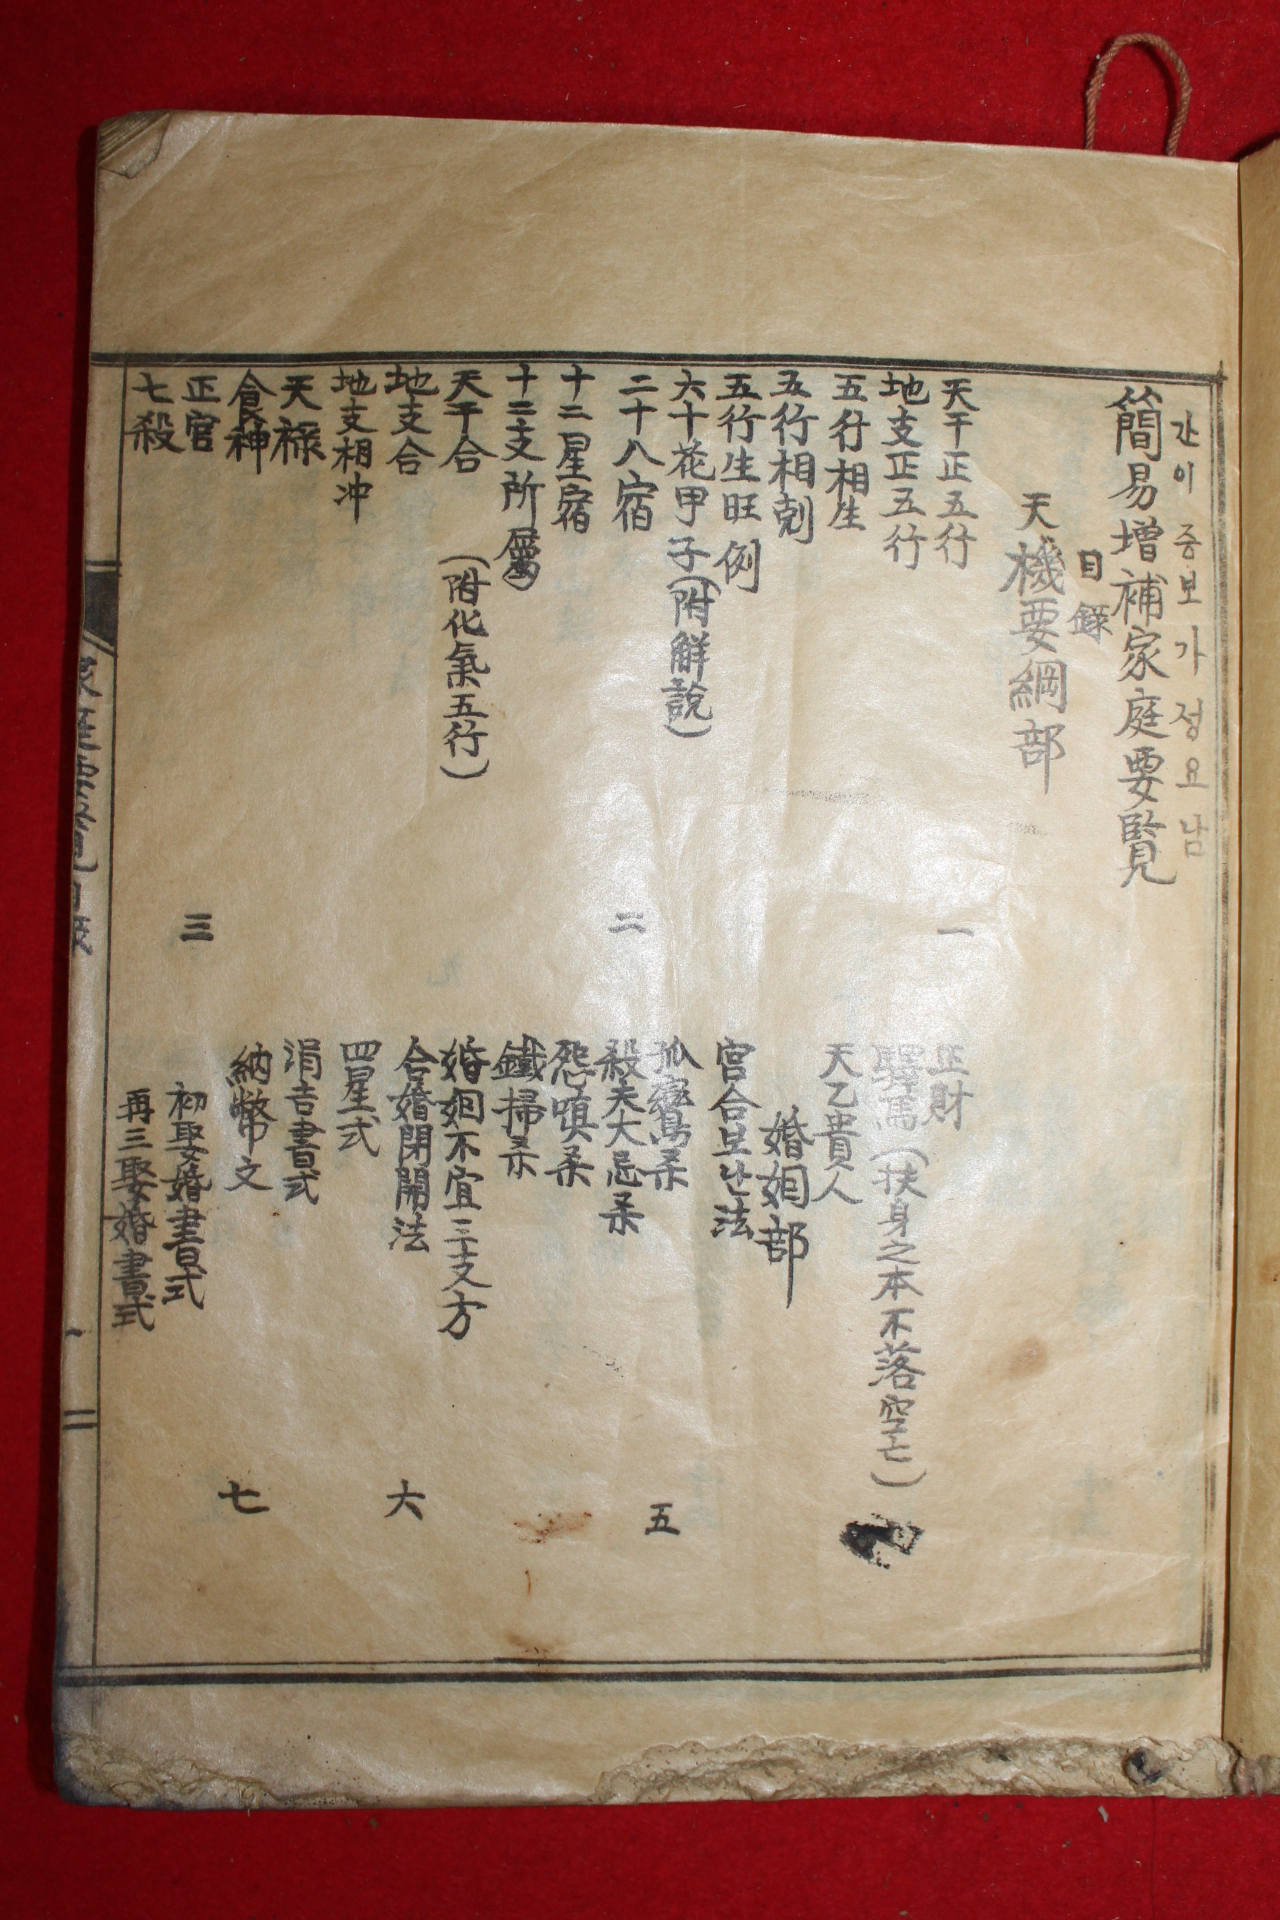 간이증보가정요남
簡易增補家庭要覽
目錄
天機要綱部
天干正五行 一
地支正五行
五行相生
五行相剋
五行生旺例
六十花甲子(附解說)
二十八宿 二
十二星宿
十二支所屬
天干合(附化氣五行)
地支合
地支相冲
天祿
食神
正官 三
七殺
正財
驛馬(扶身之本不落空亡)
天乙貴人
婚姻部
宮合보난法
孤鸞杀 五
殺夫大忌杀
怨嗔杀
鐵掃杀
婚姻不宜三支方
合婚閉開法 六
四星式
涓吉書式
納幣文 七
初娶婚書式
再三娶婚書式
家庭要覽目錄 一